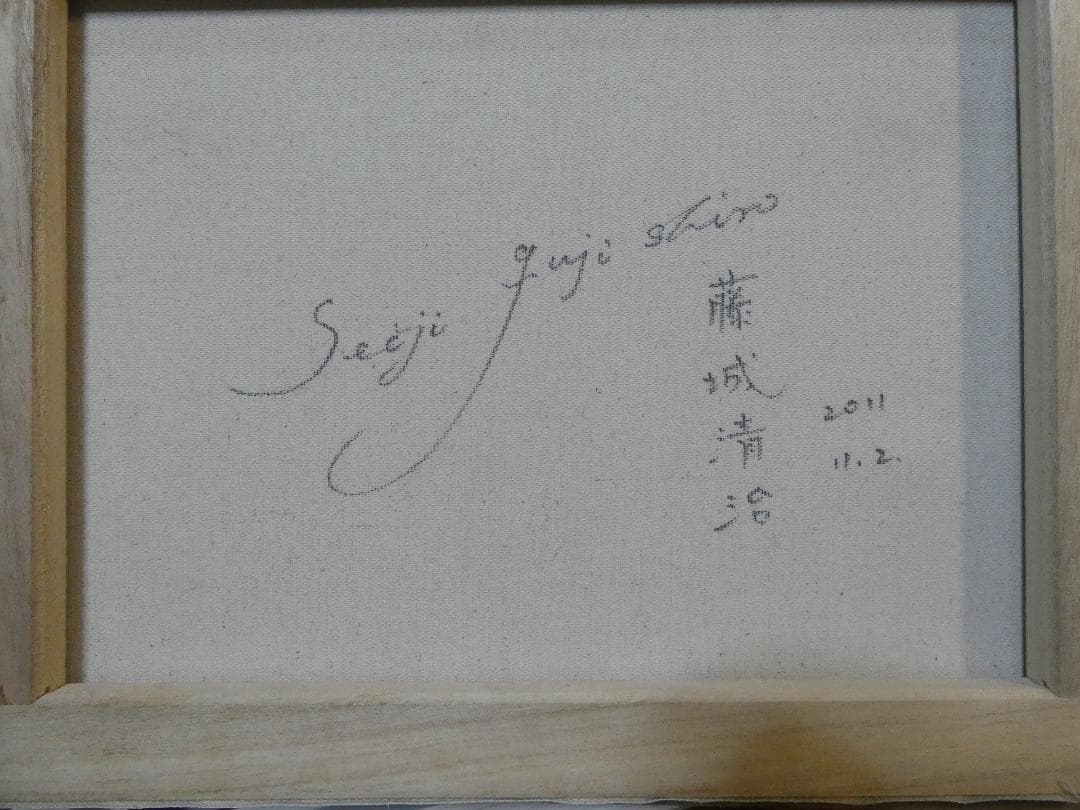 Seiji Fuji shiro
藤城清治
2011
11.2.